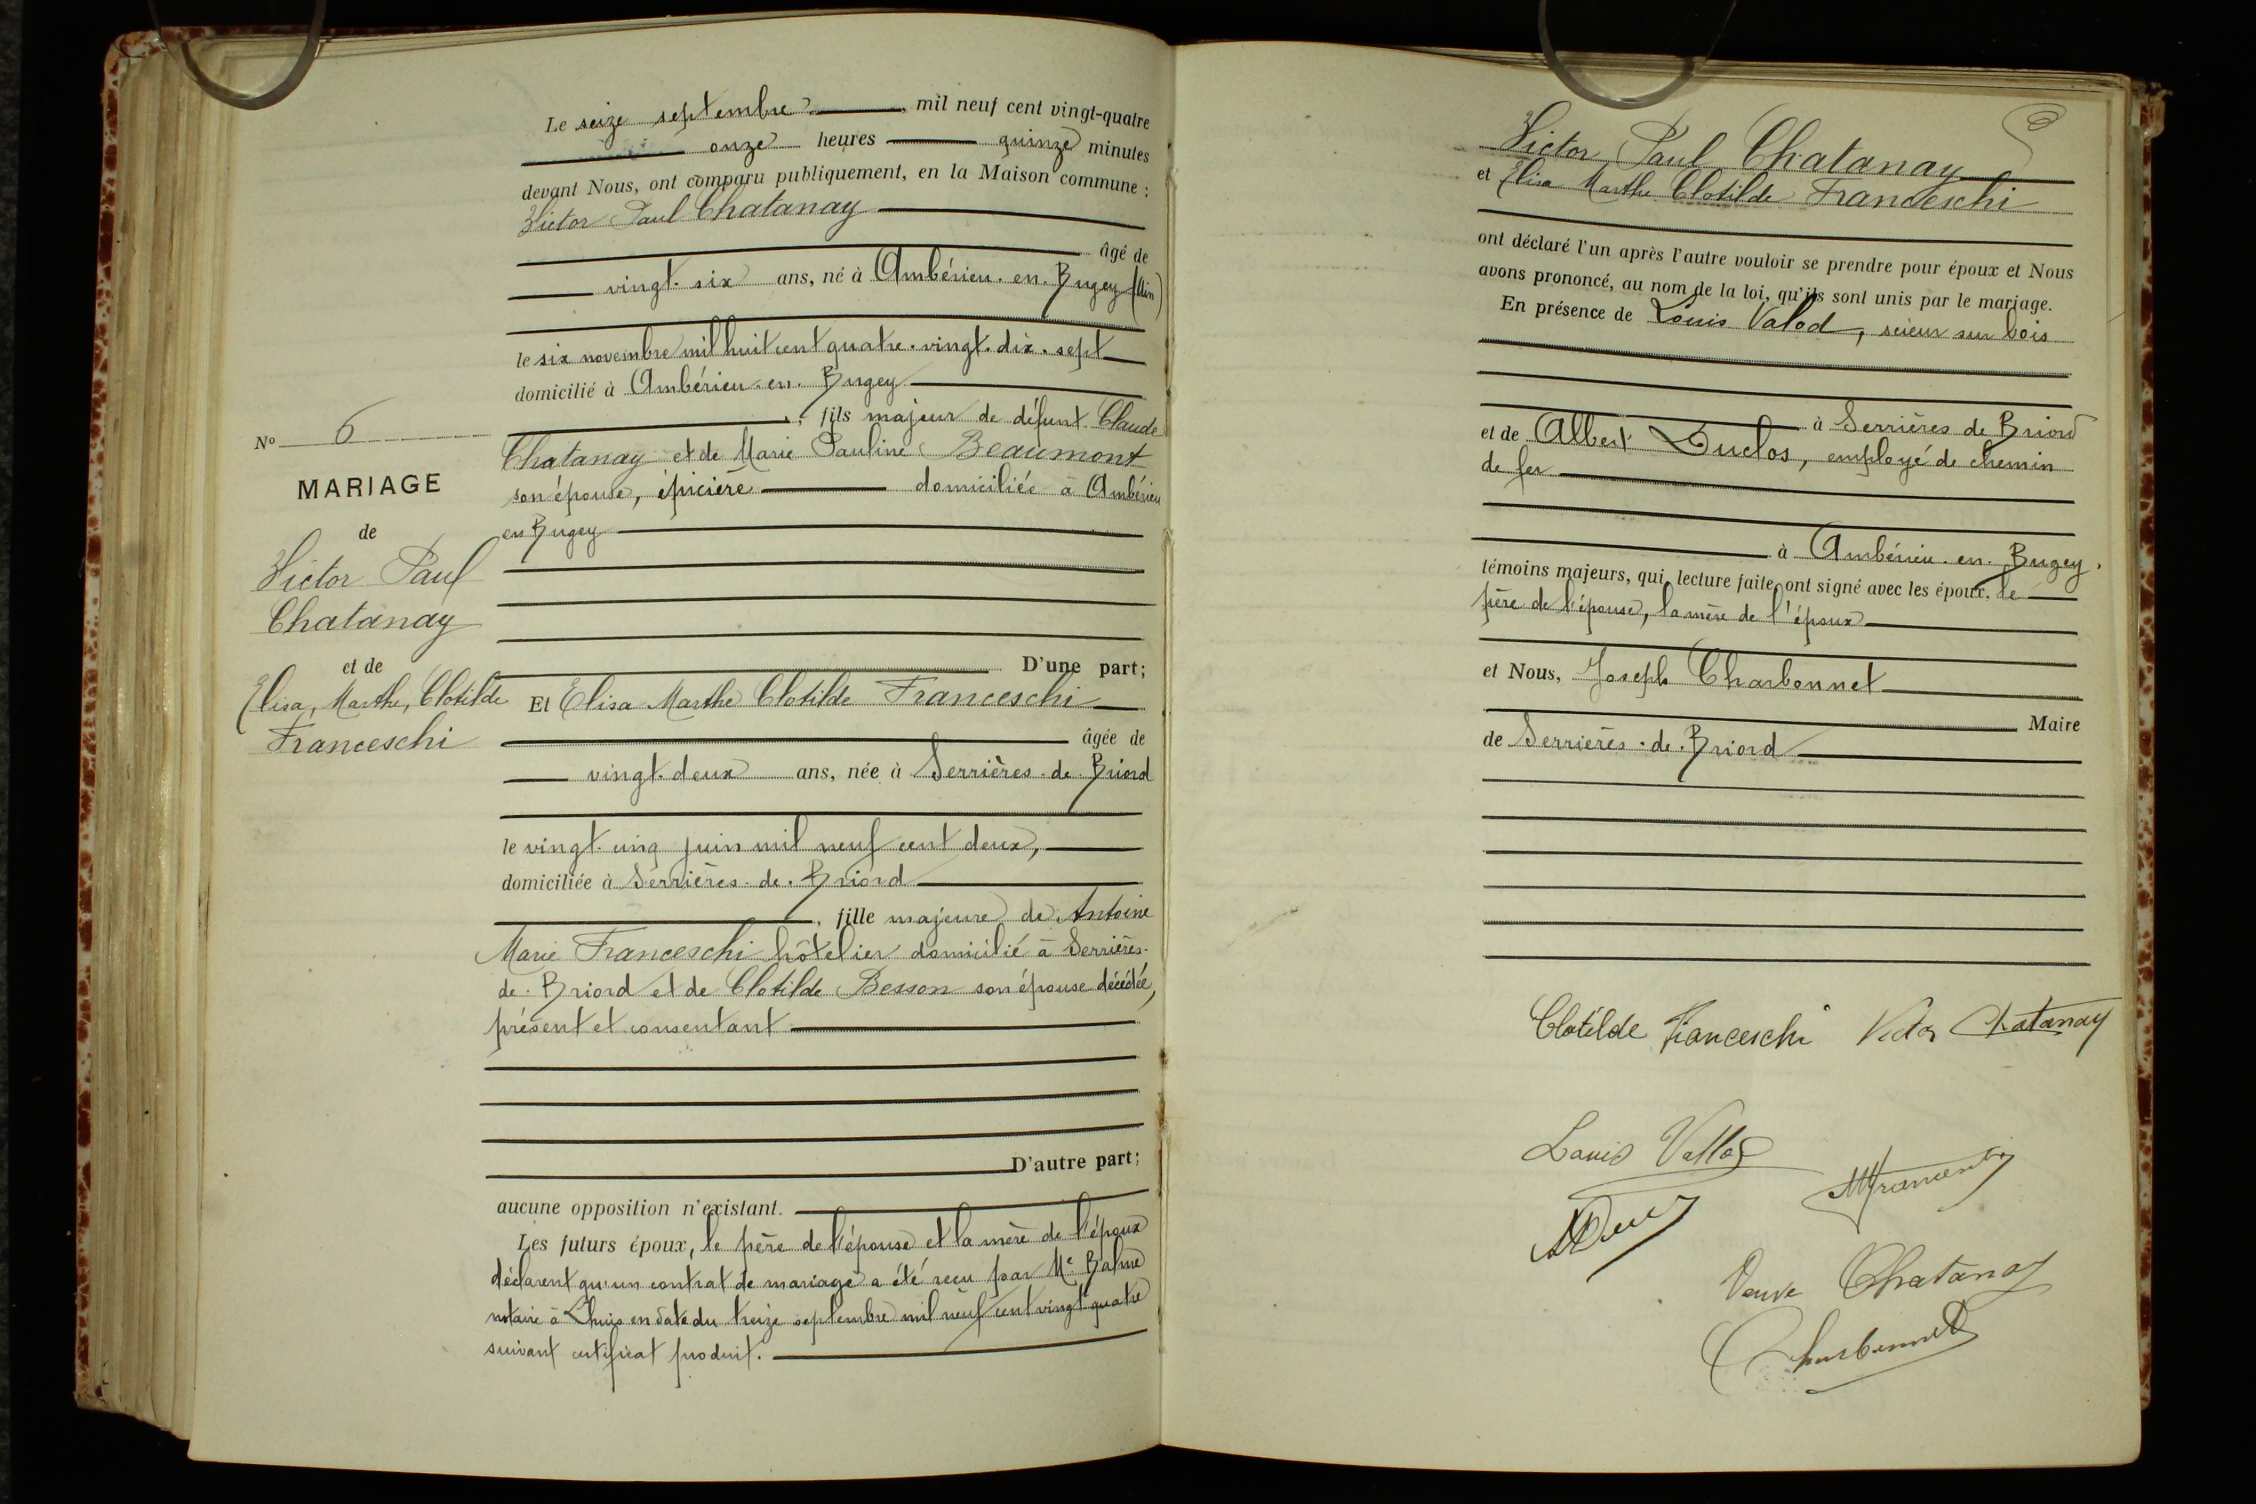 Le seize septembre mil neuf cent vingt-quatre
onze heures quinze minutes
devant Nous, ont comparu publiquement, en la Maison commune :
Victor Paul Chatanay
âgé de
vingt-six ans, né à Ambérieu-en-Bugey (Ain)
le six novembre mil huit cent quatre-vingt-dix-sept
domicilié à Ambérieu-en-Bugey
, fils majeur de défunt Claude
Chatanay et de Marie Pauline Beaumont
son épouse, épicière domiciliée à Ambérieu
en Bugey
D'une part;
Et Elisa Marthe Clotilde Franceschi
âgée de
vingt-deux ans, née à Serrières-de-Briord
le vingt-cinq juin mil neuf cent deux,
domiciliée à Serrières-de-Briord
, fille majeure de Antoine
Marie Franceschi hôtelier domicilié à Serrières-
de-Briord et de Clotilde Besson son épouse décédée,
présent et consentant
D'autre part;
aucune opposition n'existant.
Les futurs époux, le père de l'épouse et la mère de l'époux
déclarent qu'un contrat de mariage a été reçu par Me Balme
notaire à Lhuis en date du treize septembre mil neuf cent vingt quatre
suivant certificat produit.
No 6
MARIAGE
de
Victor Paul
Chatanay
et de
Elisa, Marthe, Clotilde
Franceschi
Victor Paul Chatanay
et Elisa Marthe Clotilde Franceschi
ont déclaré l'un après l'autre vouloir se prendre pour époux et Nous
avons prononcé, au nom de la loi, qu'ils sont unis par le mariage.
En présence de Louis Valod, scieur sur bois
à Serrières de Briord
et de Albert Duclos, employé de chemin
de fer
à Ambérieu-en-Bugey,
témoins majeurs, qui, lecture faite, ont signé avec les époux, le
père de l'épouse, la mère de l'époux
et Nous, Joseph Charbonnet
Maire
de Serrières-de-Briord
Clotilde Franceschi Victor Chatanay
Louis Vallod
Veuve Chatanay
Charbonnet